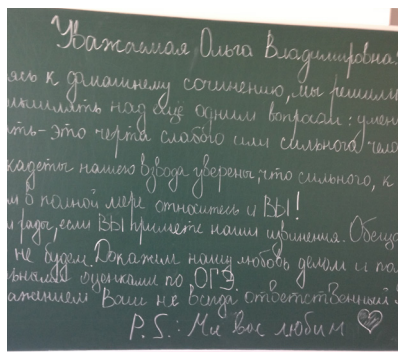 Уважаемая Ольга Владимировна!
ясь к домашнему сочинению, мы решили
над ещё одним вопросом: умен
ть - это черта слабого или сильного чело
кадеты нашего взвода уверены, что сильного, к
м в полной мере относитесь и ВЫ!
рады, если ВЫ примете наши извинения. Обеща
не будем. Докажем нашу любовь делом и по
оценками по ОГЭ.
ажением Ваш не всегда ответственный
P.S.: Мы вас любим